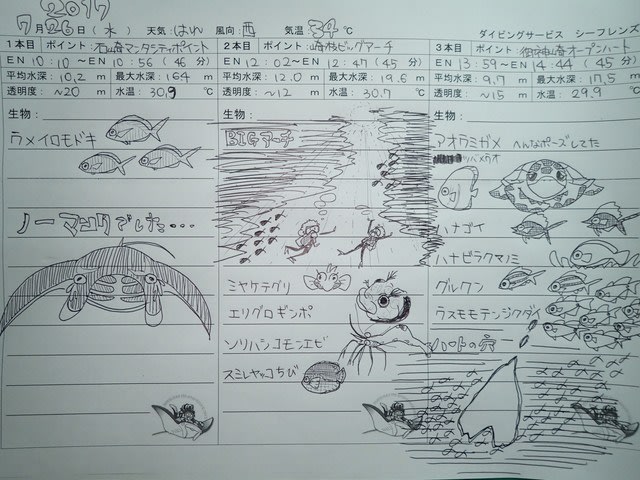 2017
7月26日(水) 天気:はれ 風向:西 気温:34℃ ダイビングサービス シーフレンズ
1本目 ポイント:石崎マンタシティポイント
EN 10:10 ~EN 10:56 (46分)
平均水深:10.2m 最大水深:16.4m
透明度:~20m 水温:30.9℃
生物:
ウメイロモドキ
ノーマンタでした・・・
2本目 ポイント:崎枝ビッグアーチ
EN 12:02 ~EN 12:47 (45分)
平均水深:12.0m 最大水深:19.6m
透明度:~12m 水温:30.7℃
生物:
BIGアーチ
ミヤケテグリ
エリグロギンポ
ソリハシコモンエビ
スミレヤッコちび
3本目 ポイント:御神崎オープンハート
EN 13:59 ~EN 14:44 (45分)
平均水深:9.7m 最大水深:17.5m
透明度:~15m 水温:29.9℃
生物:
アオウミガメ へんなポーズしてた
ツバメウオ
ハナゴイ
ハナビラクマノミ
グルクン
ウスモモテンジクダイ
ハートの穴ー